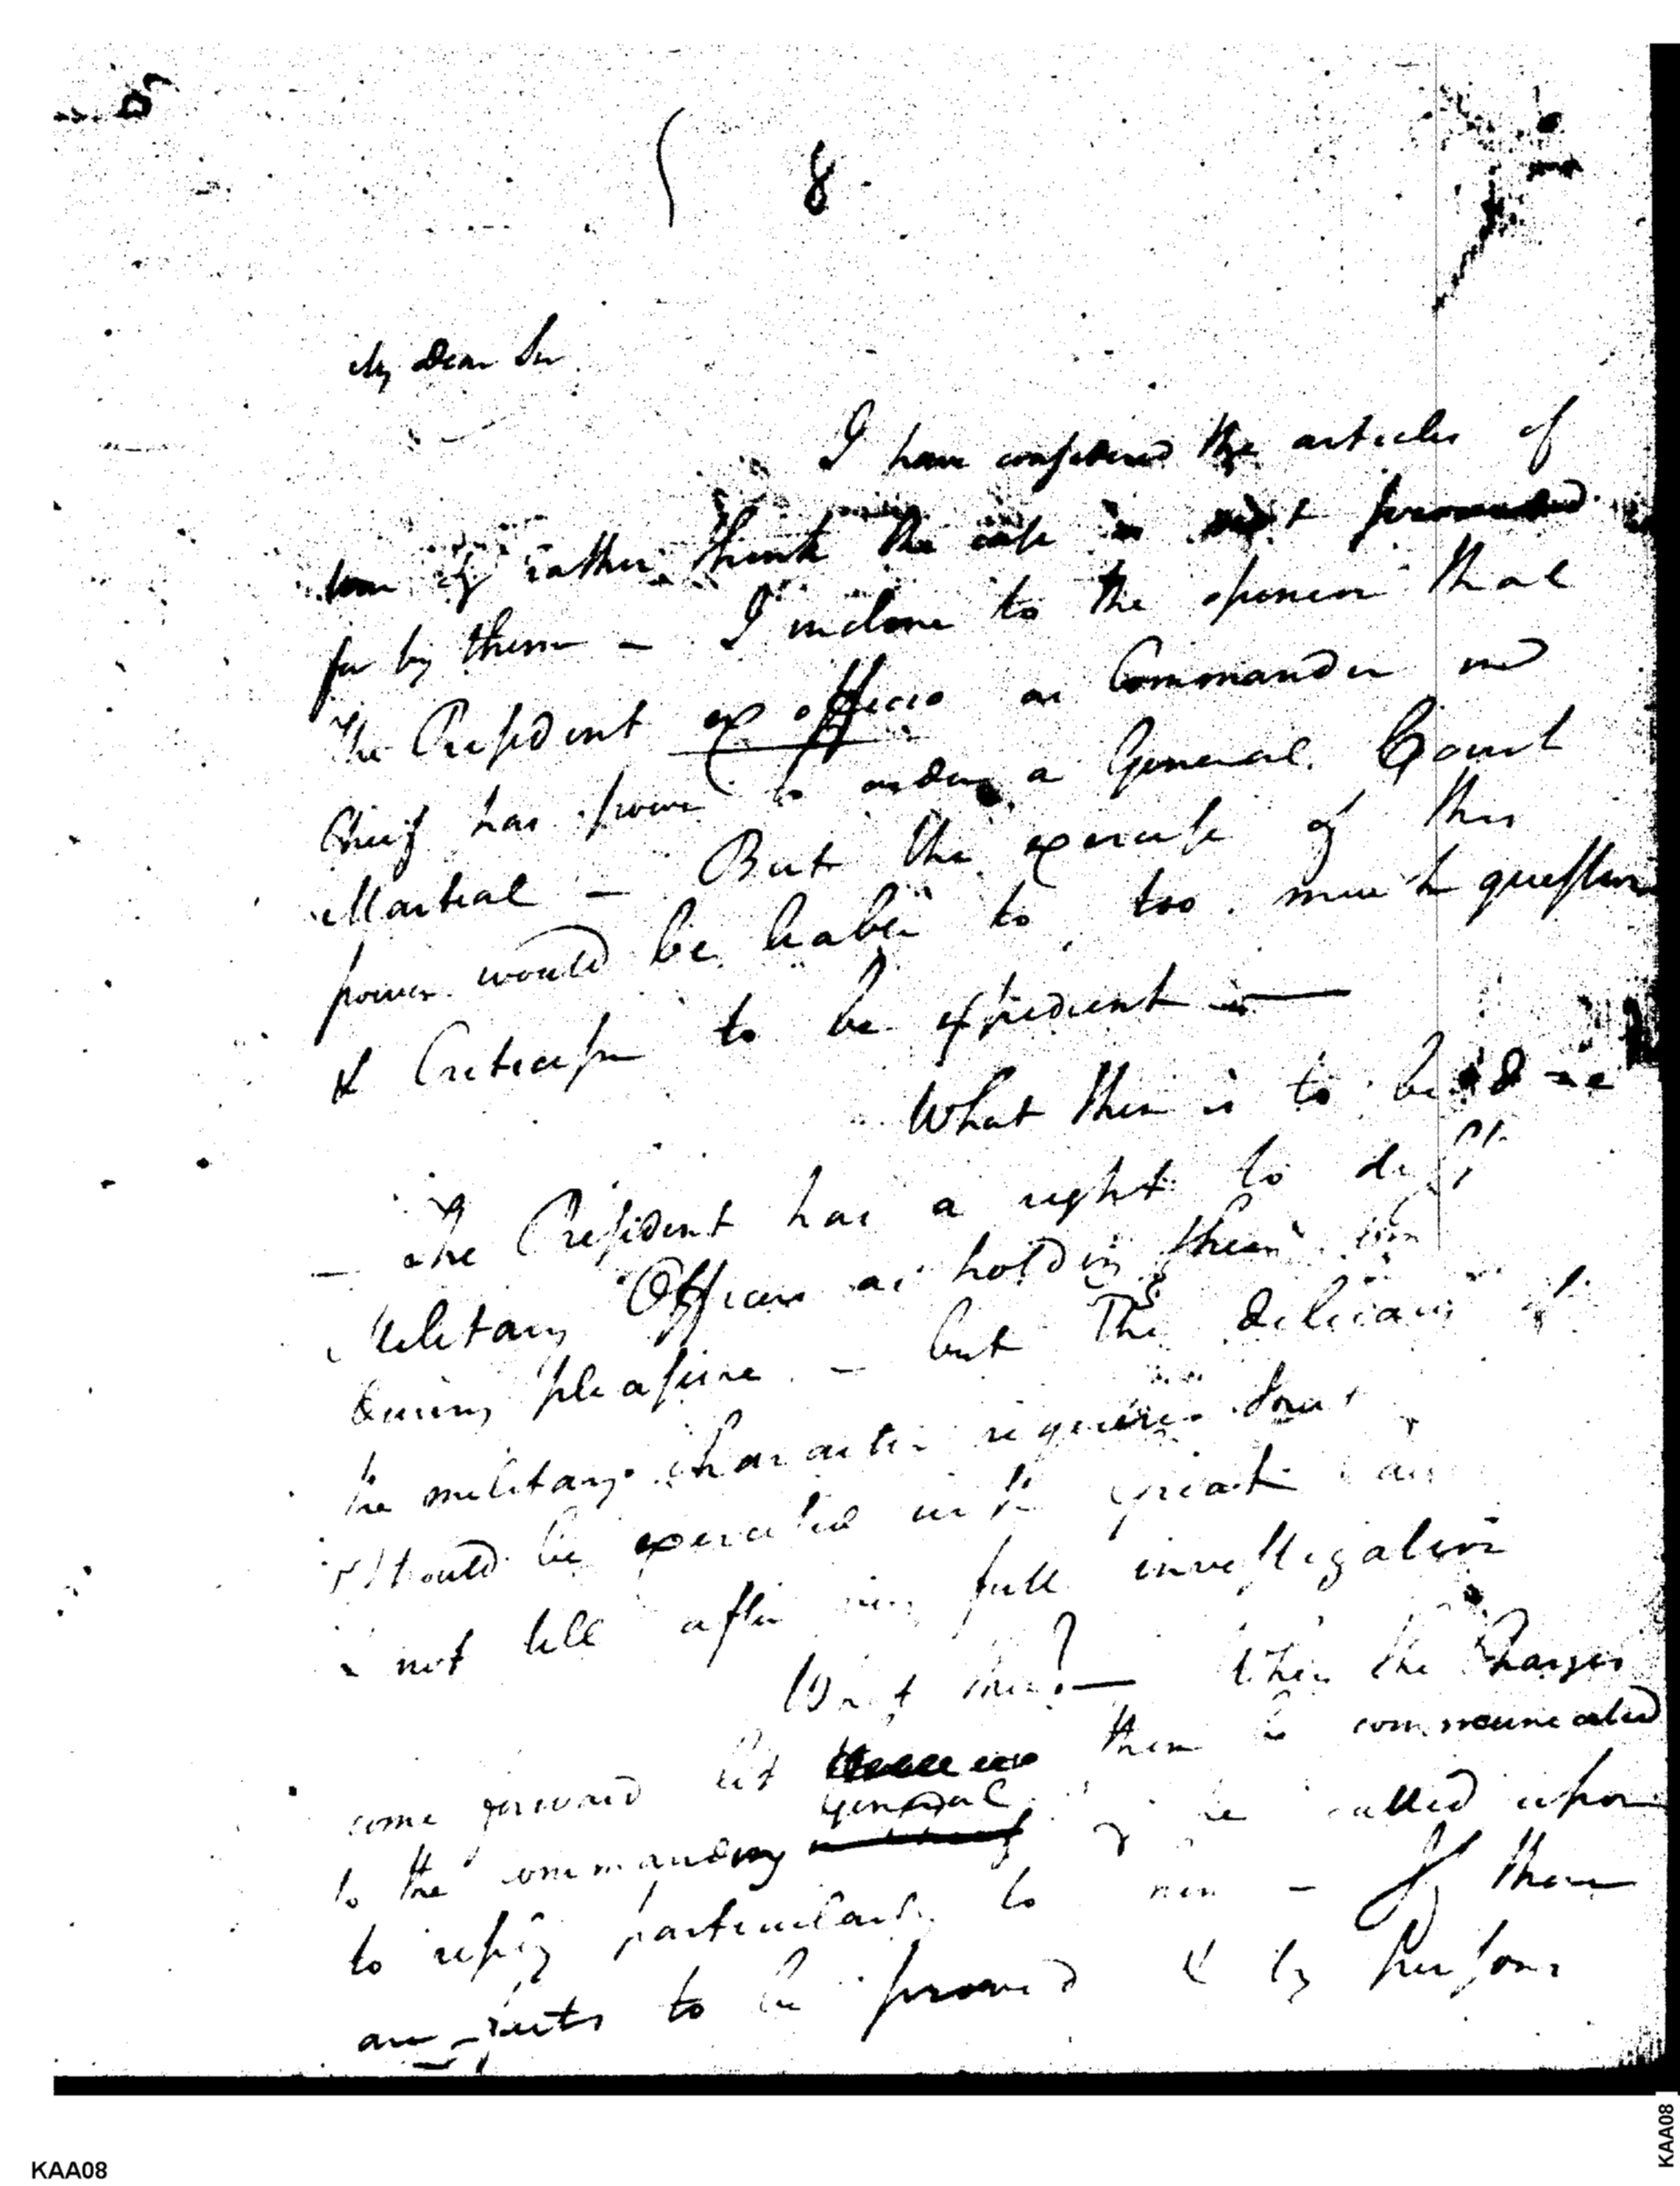 8
My Dear Sir
I have considered the articles of
war & rather think the case is not provided
for by them – I incline to the opinion that
The President ex officio as Commander in
Chief has power to order a General Court
Martial – But the exercise of this
power would be liable to too much question
& Criticism to be expedient –
What then is to be done
– The President has a right to
Military Officers as holding their
During pleasure – but The delicacy of
the military character requires that
should be executed with great care
& not till after full investigation
What then? – When the Charges
come forward let them be communicated
General
to the commanding & he called upon
to reply particularly to – If there
are facts to be proved & by persons
KAA08
KAA08